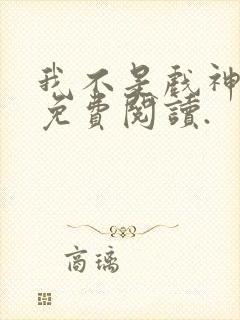 我不是戲神
免費閱讀.
高璃